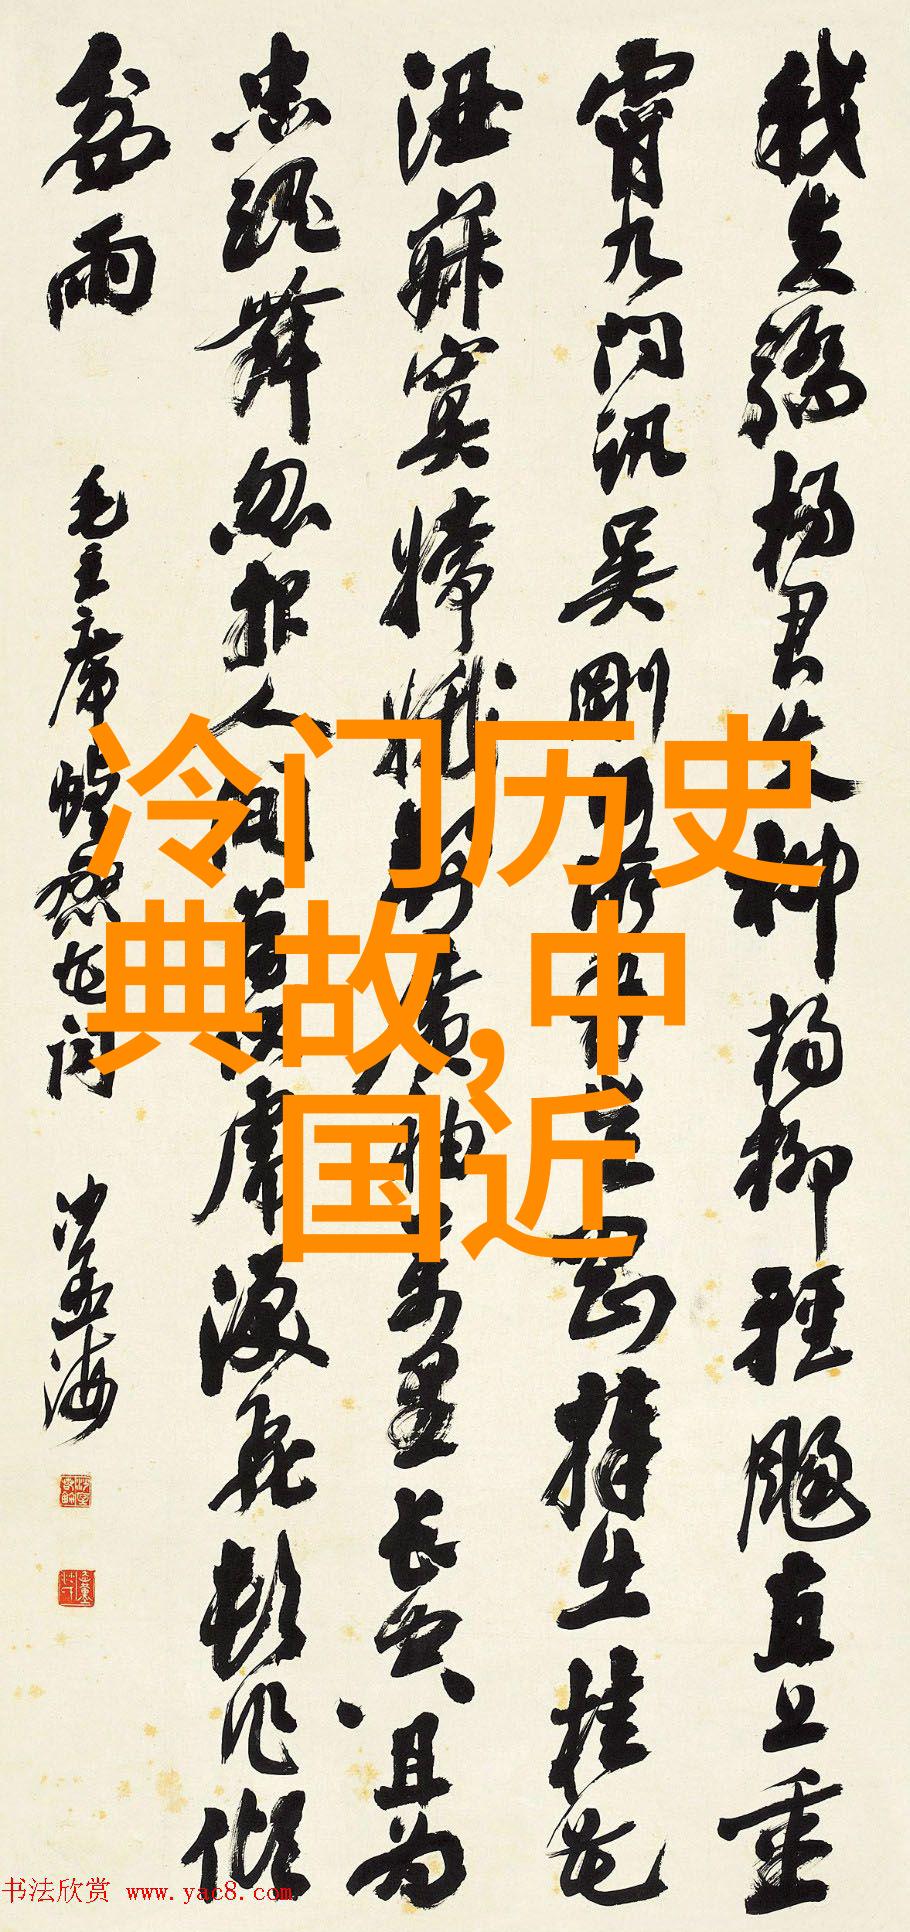 我失驕楊君失柳楊柳輕颺直上重
霄九問訊吴剛何所有吴剛捧出桂花
酒寂寞嫦娥舒廣袖万里长空且为
忠魂舞忽报人间曾伏虎淚飛頓作傾
盆雨
毛主席蝶戀花詞 沙孟海
冷门历史
典故,中
国近
书法欣赏 www.yac8.com